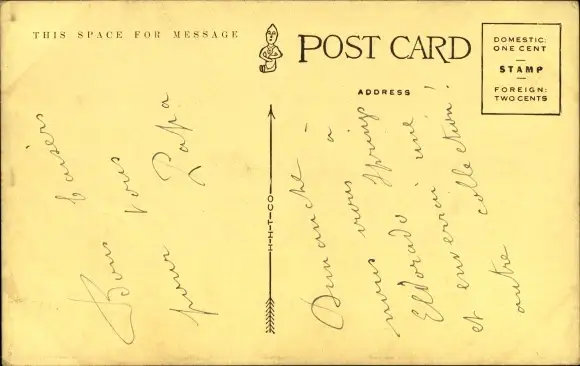 THIS SPACE FOR MESSAGE
POST CARD
DOMESTIC:
ONE CENT
STAMP
FOREIGN:
TWO CENTS
ADDRESS
H-H-T-CO
Bons baisers
pour vous
Papa
Dimanche
nous irons à
Eldorado Springs
et enverrai une
autre collection!